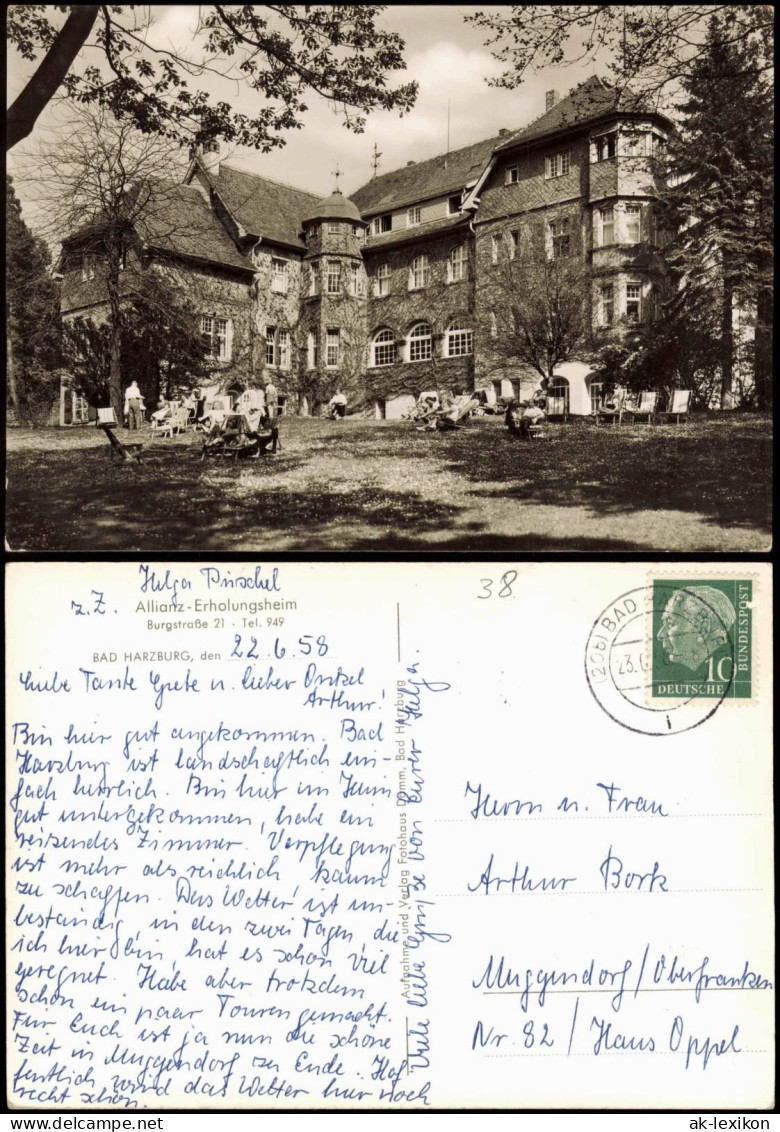 Helga Püschel
z. Z. Allianz-Erholungsheim
Burgstraße 21 · Tel. 949
BAD HARZBURG, den 22.6.58
Liebe Tante Grete u. lieber Onkel
Arthur!
Bin hier gut angekommen. Bad
Harzburg ist landschaftlich ein-
fach herrlich. Bin hier im Heim
gut untergekommen, habe ein
reizendes Zimmer. Verpflegung
ist mehr als reichlich, kaum
zu schaffen. Das Wetter ist un-
beständig, in den zwei Tagen, die
ich hier bin, hat es schon viel
geregnet. Habe aber trotzdem
schon ein paar Touren gemacht.
Für Euch ist ja nun die schöne
Zeit in Muggendorf zu Ende. Hof-
fentlich wird das Wetter hier noch
recht schön.
Viele liebe Grüsse von Eurer Helga.
Aufnahme und Verlag Fotohaus Damm, Bad Harzburg
38
(20b) BAD HARZBURG
23.6.
i
10
DEUTSCHE
BUNDESPOST
Herrn u. Frau
Arthur Bork
Muggendorf/Oberfranken
Nr. 82 / Haus Oppel
ak-lexikon